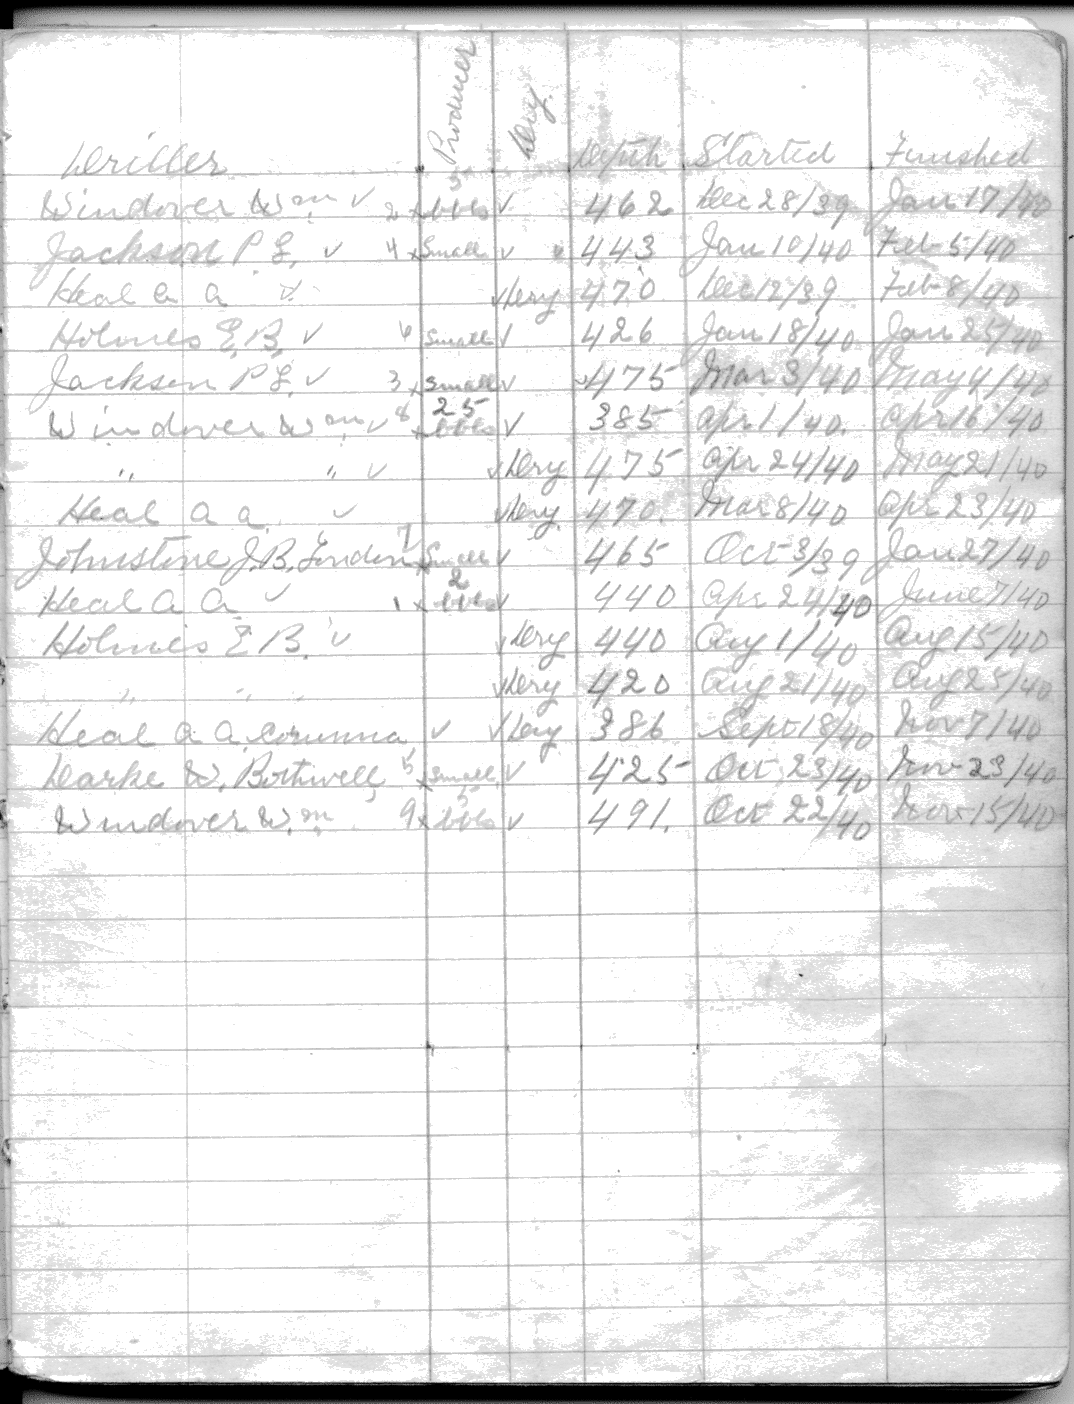 Driller Producer Dry. Depth Started Finished
Windover Wm ✓ 2 x 5 bbls ✓ 462 Dec 28/39 Jan 17/40
Jackson P.L. ✓ 4 x Small ✓ 443 Jan 10/40 Feb 5/40
Heal A A ✓ ✓ Dry 470 Dec 12/39 Feb 8/40
Holmes E.B. ✓ 6 Small ✓ 426 Jan 18/40 Jan 25/40
Jackson P.L. ✓ 3 x Small ✓ 475 Mar 3/40 May 4/40
Windover Wm ✓ 8 x 25 bbls ✓ 385 Apr 1/40. Apr 16/40
" " ✓ ✓ Dry 475 Apr 24/40 May 21/40
Heal A A. ✓ ✓ Dry. 470. Mar 8/40 Apr 23/40
Johnstone J.B. London 7 x Small ✓ 465 Oct 3/39 Jan 27/40
Heal A A ✓ 1 x 2 bbls ✓ 440 Apr 24/40 June 7/40
Holmes E B. ✓ ✓ Dry 440 Aug 1/40 Aug 15/40
" " " ✓ Dry 420 Aug 21/40 Aug 25/40
Heal A A. Corunna, ✓ ✓ Dry 386 Sept 18/40 Nov 7/40
Darke W. Bothwell, 5 x Small ✓ 425 Oct. 23/40 Nov 23/40
Windover Wm 9 x 5 bbls ✓ 491. Oct 22/40 Nov 15/40